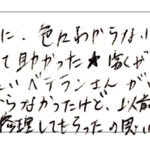 に、色々わからない
て助かった★ 働くぜ
いベテランさんが
らなかったけど、以前
修理してもらったの思い